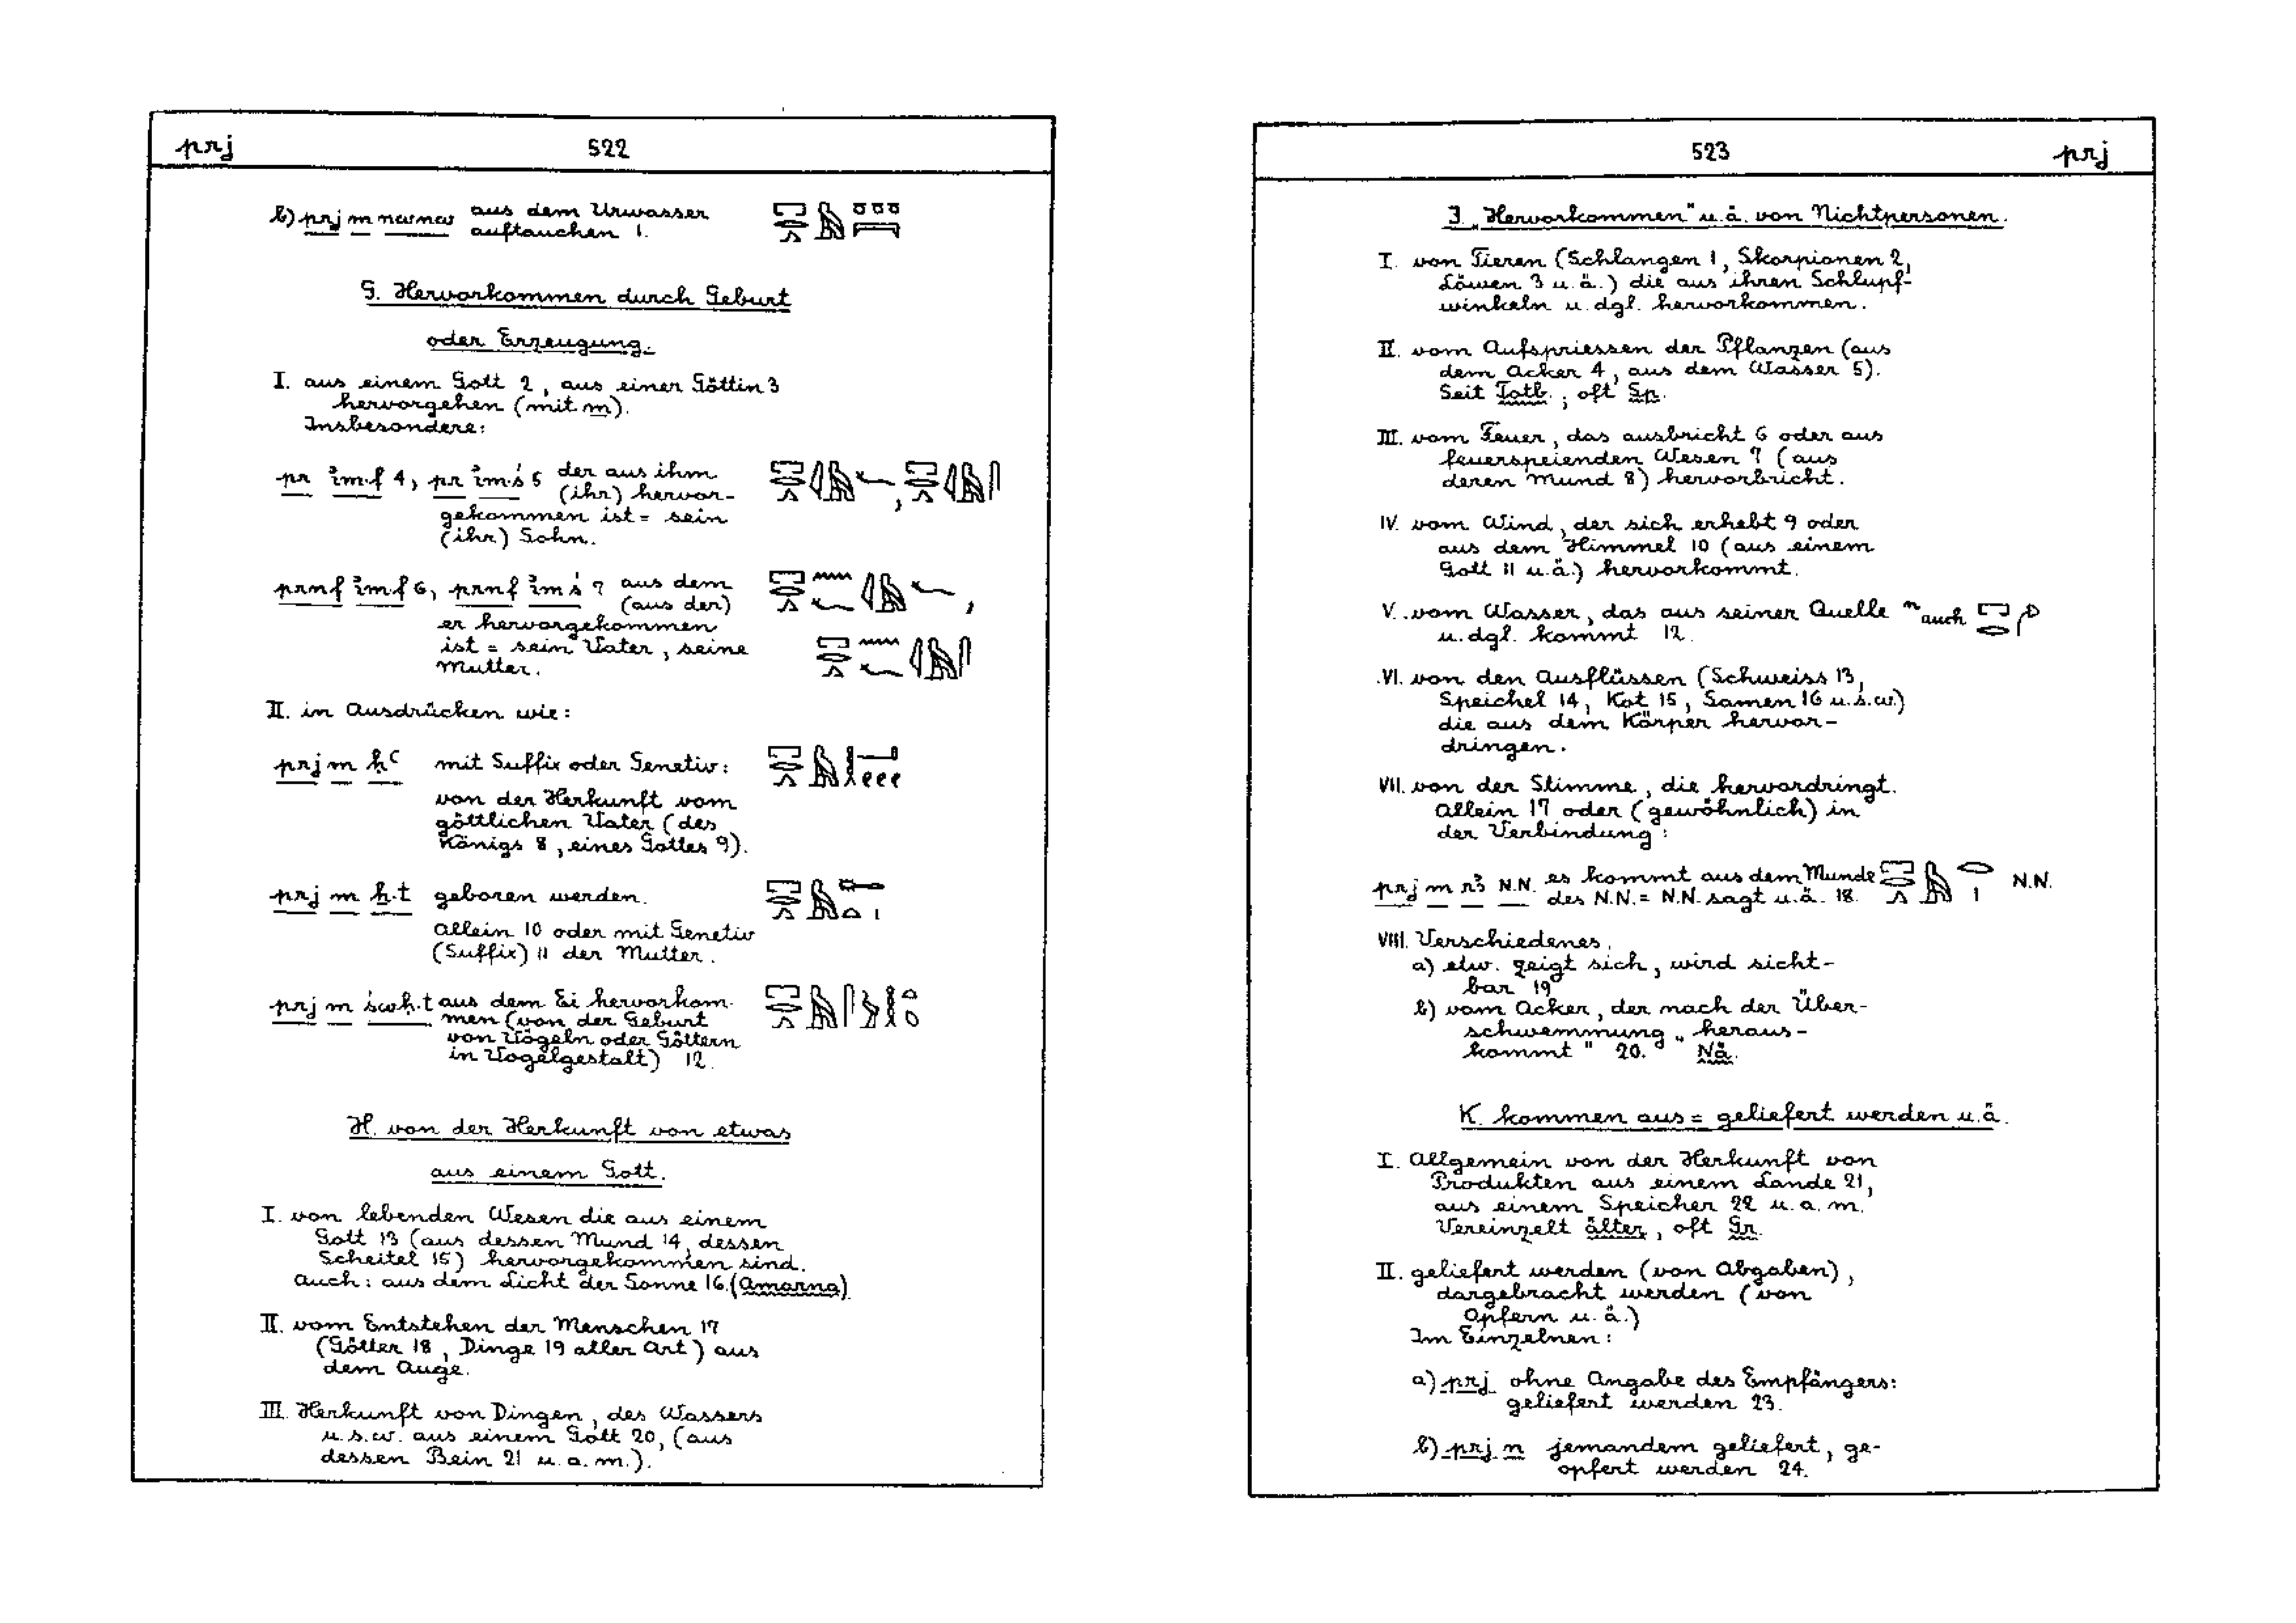 prj 522
b) prj m nwnw aus dem Urwasser
auftauchen 1.
G. Hervorkommen durch Geburt
oder Erzeugung.
I. aus einem Gott 2, aus einer Göttin 3
hervorgehen (mit m).
Insbesondere:
pr im.f 4, pr im.ś 5 der aus ihm
(ihr) hervor-
gekommen ist = sein
(ihr) Sohn.
prnf imf 6, prnf imś 7 aus dem
(aus der)
er hervorgekommen
ist = sein Vater, seine
Mutter.
II. in Ausdrücken wie:
prj m ḥꜥ mit Suffix oder Genetiv:
von der Herkunft vom
göttlichen Vater (des
Königs 8, eines Gottes 9).
prj m ẖ.t geboren werden.
allein 10 oder mit Genetiv
(Suffix) 11 der Mutter.
prj m śwḥ.t aus dem Ei hervorkom-
men (von der Geburt
von Vögeln oder Göttern
in Vogelgestalt) 12.
H. von der Herkunft von etwas
aus einem Gott.
I. von lebenden Wesen die aus einem
Gott 13 (aus dessen Mund 14, dessen
Scheitel 15) hervorgekommen sind.
Auch: aus dem Licht der Sonne 16. (Amarna)
II. vom Entstehen der Menschen 17
(Götter 18, Dinge 19 aller Art) aus
dem Auge.
III. Herkunft von Dingen, des Wassers
u.s.w. aus einem Gott 20, (aus
dessen Bein 21 u.a.m.).
523 prj
J. „Hervorkommen" u.ä. von Nichtpersonen.
I. von Tieren (Schlangen 1, Skorpionen 2,
Löwen 3 u.ä.) die aus ihren Schlupf-
winkeln u.dgl. hervorkommen.
II. vom Aufspriessen der Pflanzen (aus
dem Acker 4, aus dem Wasser 5).
Seit Totb.; oft Sp.
III. vom Feuer, das ausbricht 6 oder aus
feuerspeienden Wesen 7 (aus
deren Mund 8) hervorbricht.
IV. vom Wind, der sich erhebt 9 oder
aus dem Himmel 10 (aus einem
Gott 11 u.ä.) hervorkommt.
V. vom Wasser, das aus seiner Quelle auch
u.dgl. kommt 12.
VI. von den Ausflüssen (Schweiss 13,
Speichel 14, Kot 15, Samen 16 u.s.w.)
die aus dem Körper hervor-
dringen.
VII. von der Stimme, die hervordringt.
Allein 17 oder (gewöhnlich) in
der Verbindung:
prj m rꜣ N.N. es kommt aus dem Munde N.N.
des N.N. = N.N. sagt u.ä. 18.
VIII. Verschiedenes.
a) etw. zeigt sich, wird sicht-
bar 19
b) vom Acker, der nach der Über-
schwemmung „heraus-
kommt" 20. Nä.
K. kommen aus = geliefert werden u.ä.
I. Allgemein von der Herkunft von
Produkten aus einem Lande 21,
aus einem Speicher 22 u.a.m.
Vereinzelt älter, oft Gr.
II. geliefert werden (von Abgaben),
dargebracht werden (von
Opfern u.ä.)
Im Einzelnen:
a) prj ohne Angabe des Empfängers:
geliefert werden 23.
b) prj n jemandem geliefert, ge-
opfert werden 24.